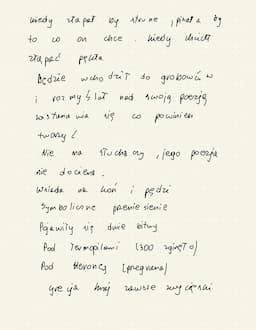 kiedy złapał by strune, pisał by
to co on chce. kiedy chciał
złapać pęczła
Będzie wchodził do grobowców
i rozmyślał nad swoją poezją
zastanawia się co powinien
tworzyć
Nie ma słuchaczy, jego poezja
nie dociera.
Wsiada na koń i pędzi
Symboliczne przeniesienie
Pojawiły się dwie bitwy
Pod Termopilami (300 zginęło)
Pod Cheroneą (przegrana)
Grecja kraj zawsze zwycięski